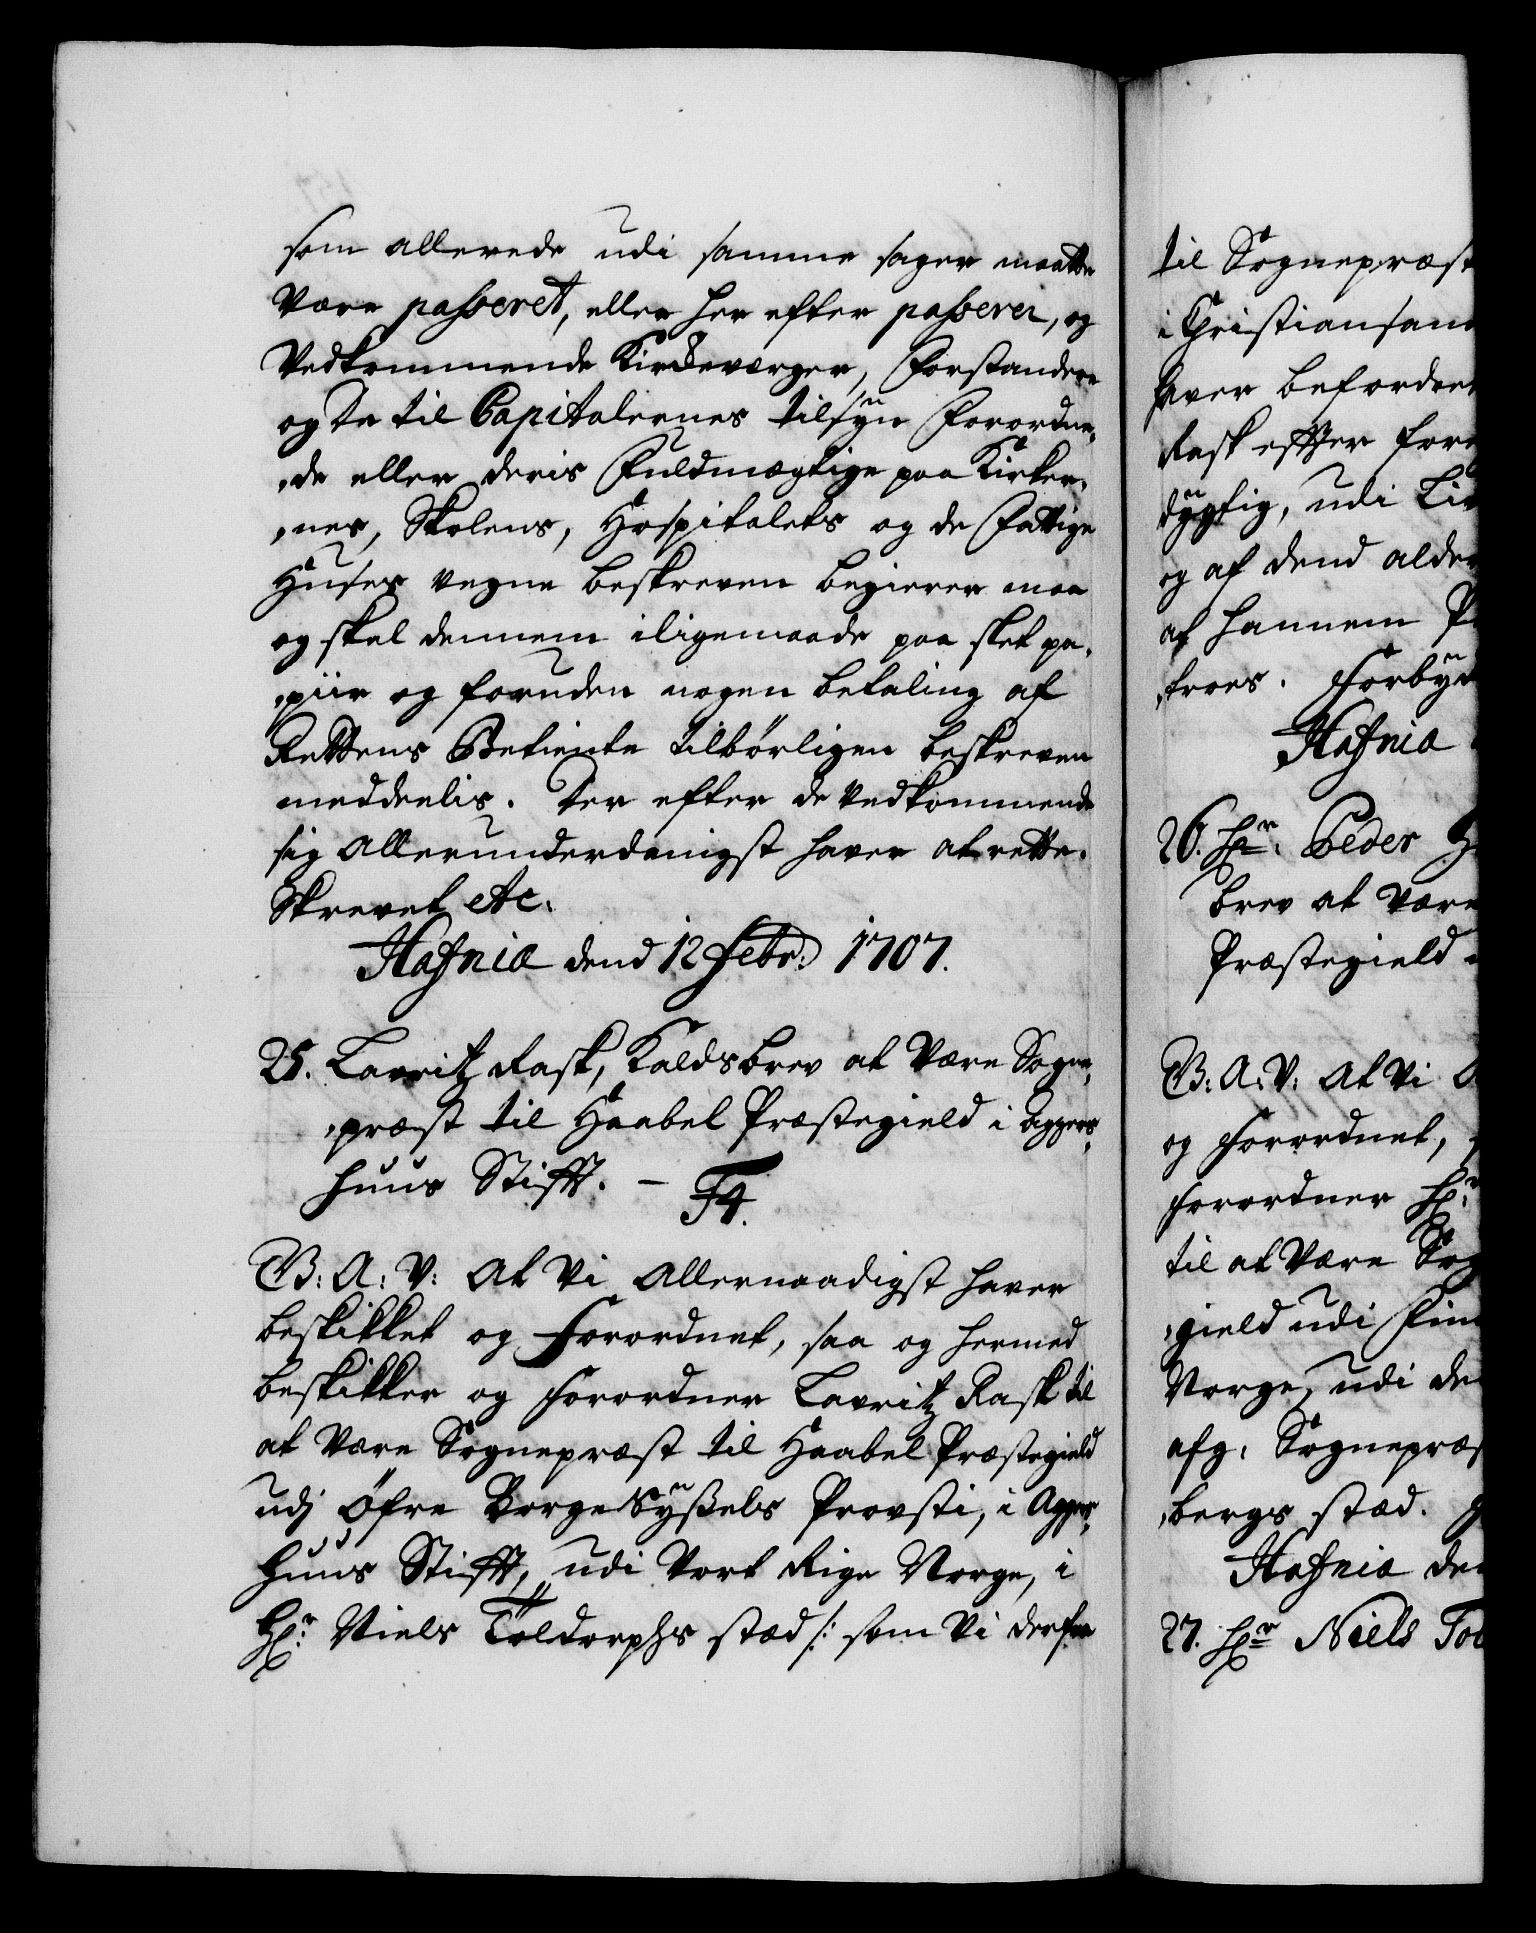 som allerede udi samme sager maatte
være passeret, eller her efter passerer, og
Vedkommende Kirkeværger, Forstandere
og de til Capitalernes tilsyn Forordne„
„de eller deris Fuldmægtige paa Kirker„
„nes, Skolens, Hospitalets og de Fattige
Huses vegne beskreven begierer maa
og skal dennem iligemaade paa slet pa„
„piir og foruden nogen betaling af
Rettens Betiente tilbørligen beskreven
meddeelis. Der efter de vedkommende
sig allerunderdanigst haver at rette.
Skrevet etc.
Hafniæ dend 12 Febr: 1707.
25. Lauritz Rask, Kaldsbrev at være Sogne„
„præst til Haabel Præstegield i Aggers„
huus Stifft. – F4.
G: A: V: At Vi Allernaadigst haver
beskikket og Forordnet, saa og hermed
beskikker og forordner Lauritz Rask til
at være Sognepræst til Haabel Præstegield
udj Øfre Borge Syßels Provsti, i Agger„
huus Stifft, udi Vort Rige Norge, i
Hr: Niels Toldorphs stæd /: som Vi derfra
til Sognepræst
i Christiansand
haver befordret
Rask efter for
dygtig, udi Li
og af dend alder
at hannem P
„troes. Forbyd
Hafniæ
26. Hr: Peder
brev at være
Præstegield
G: A: V: At Vi
og Forordnet,
forordner Hr:
til at være Sog
„gield udi Fin
Norge, udi de
afg: Sognepræs
„bergs stæd.
Hafniæ de
27. Hr Niels Tol